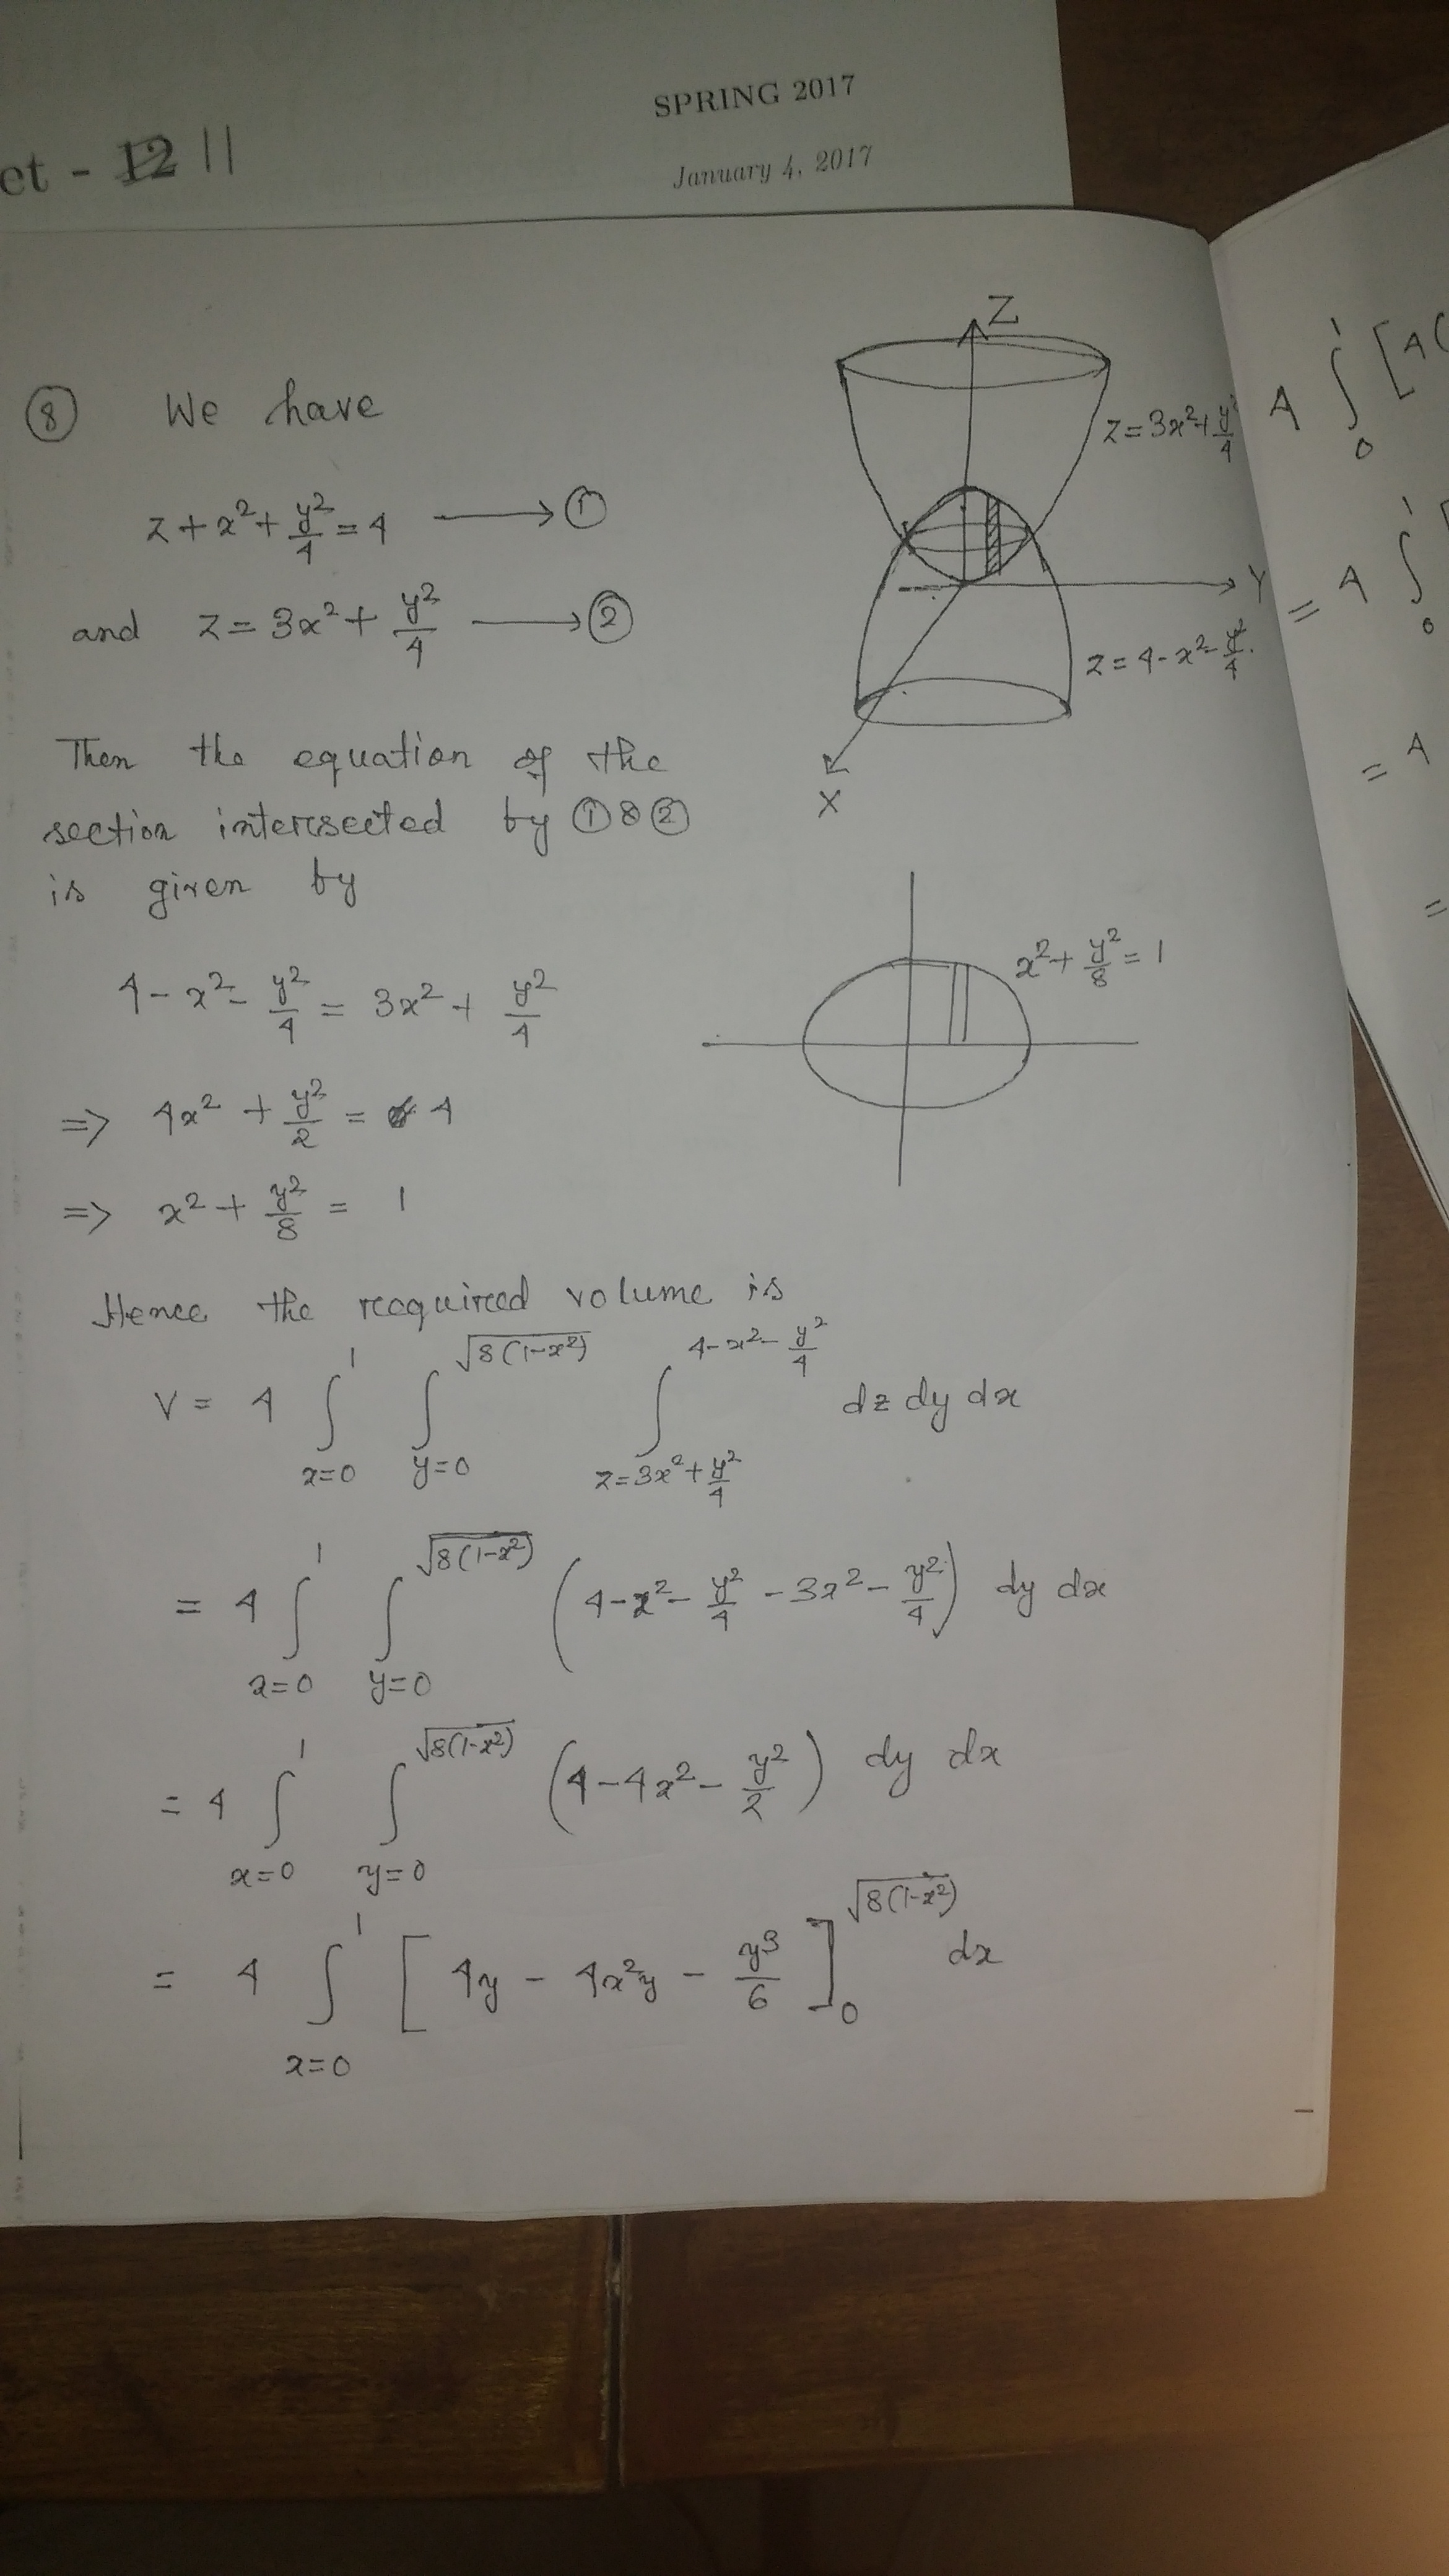 SPRING 2017
et - 12 11
January 4, 2017
⑧ We have
z + x² + y²/4 = 4 ⟶ ①
and z = 3x² + y²/4 ⟶ ②
Then the equation of the
section intersected by ① & ②
is given by
4 - x² - y²/4 = 3x² + y²/4
=> 4x² + y²/2 = 4
=> x² + y²/8 = 1
Z
z = 3x² + y²/4
Y
z = 4 - x² - y²/4.
X
x² + y²/8 = 1
Hence the required volume is
V = 4 ∫_{x=0}^{1} ∫_{y=0}^{√8(1-x²)} ∫_{z=3x²+y²/4}^{4-x²-y²/4} dz dy dx
= 4 ∫_{x=0}^{1} ∫_{y=0}^{√8(1-x²)} (4 - x² - y²/4 - 3x² - y²/4) dy dx
= 4 ∫_{x=0}^{1} ∫_{y=0}^{√8(1-x²)} (4 - 4x² - y²/2) dy dx
= 4 ∫_{x=0}^{1} [4y - 4x²y - y³/6]_{0}^{√8(1-x²)} dx
4 ∫_{0}^{1} [4(
= 4 ∫_{0}^{1}
= 4
=